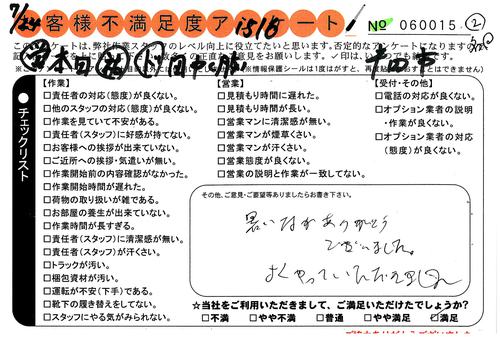 7/24 お客様不満足度アンケート! № 060015 ②
このアンケートは、弊社作業スタッフのレベル向上に役立てたいと思います。否定的なアンケートになりますの
【作業】
□責任者の対応(態度)が良くない。
□他のスタッフの対応(態度)が良くない。
□作業を見ていて不安がある。
□責任者(スタッフ)に好感が持てない。
□お客様への挨拶が出来ていない。
□ご近所への挨拶・気遣いが無い。
□作業開始前の内容確認がなかった。
□作業開始時間が遅れた。
□荷物の取り扱いが雑である。
□お部屋の養生が出来ていない。
□作業時間が長すぎる。
□責任者(スタッフ)に清潔感が無い。
□責任者(スタッフ)が汗くさい。
□トラックが汚い。
□梱包資材が汚い。
□運転が不安(下手)である。
□靴下の履き替えをしてない。
□スタッフにやる気がみられない。
【営業】
□見積もり時間に遅れた。
□見積もり時間が長い。
□営業マンに清潔感が無い。
□営業マンが煙草くさい。
□営業マンが汗くさい。
□営業態度が良くない。
□営業の説明と作業が一致してない。
【受付・その他】
□電話の対応が良くない。
□オプション業者の説明
・作業が良くない。
□オプション業者の対応
(態度)が良くない。
●チェックリスト
その他、ご意見・ご要望等ありましたらお書き下さい。
暑い中ありがとう
ございました。
よくやっていただきました
☆当社をご利用いただきまして、ご満足いただけたでしょうか?
□不満 □やや不満 □普通 □やや満足 ☑満足